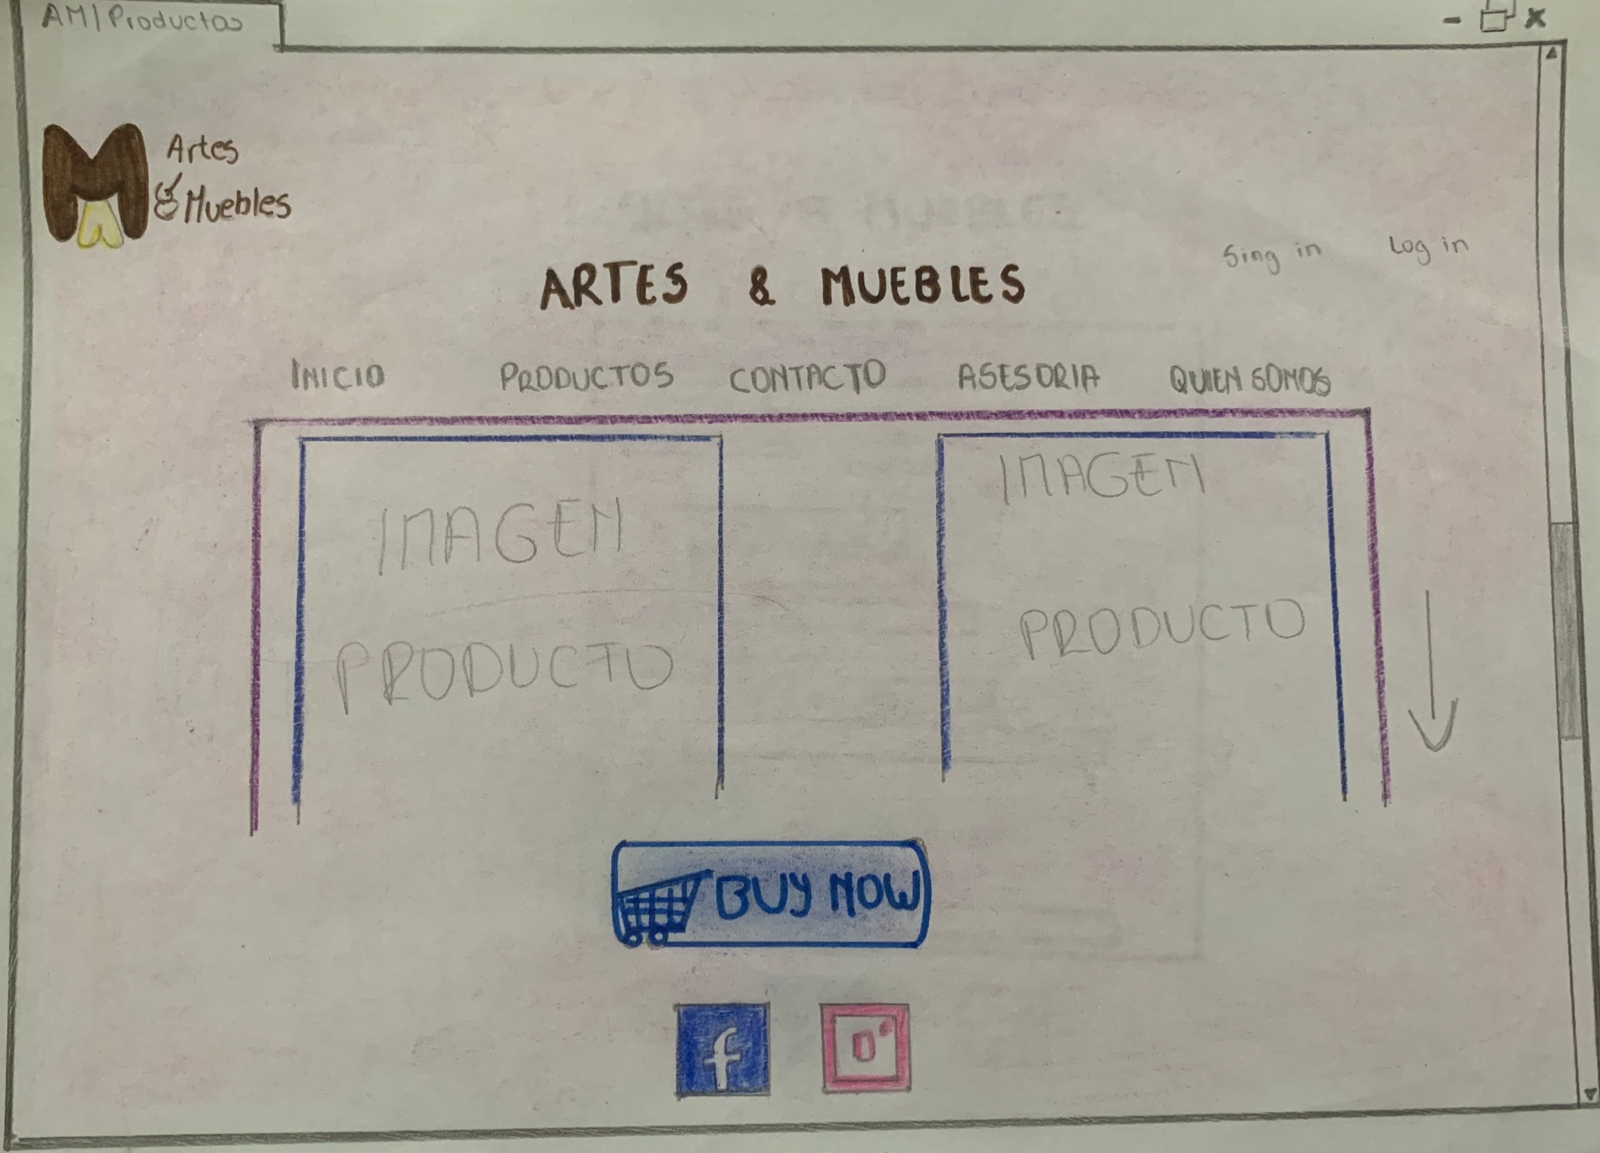 AM|Productos
Artes
& Muebles
Sing in
Log in
ARTES & MUEBLES
INICIO
PRODUCTOS
CONTACTO
ASESORIA
QUIEN SOMOS
IMAGEN
PRODUCTO
IMAGEN
PRODUCTO
BUY NOW
f